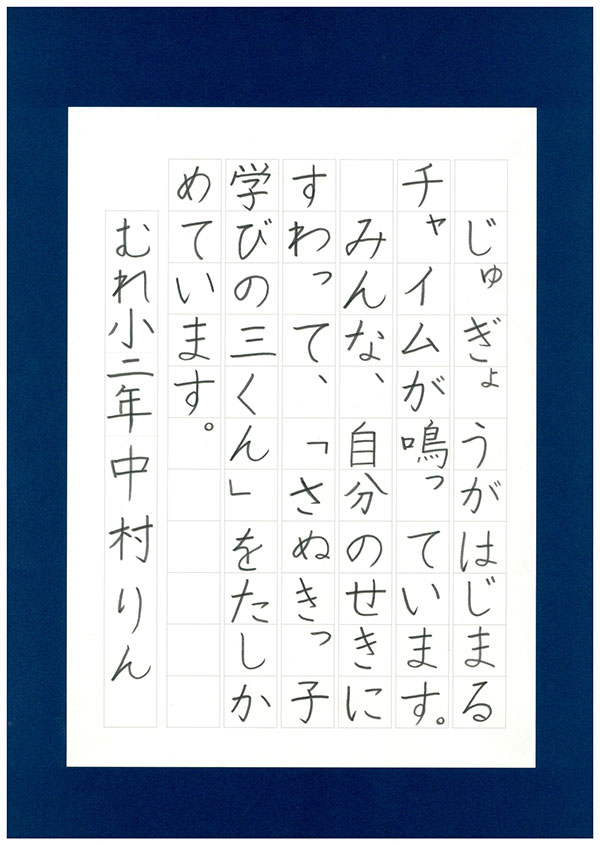 じゅぎょうがはじまる
チャイムが鳴っています。
みんな、自分のせきに
すわって、「さぬきっ子
学びの三くん」をたしか
めています。
むれ小二年中村りん